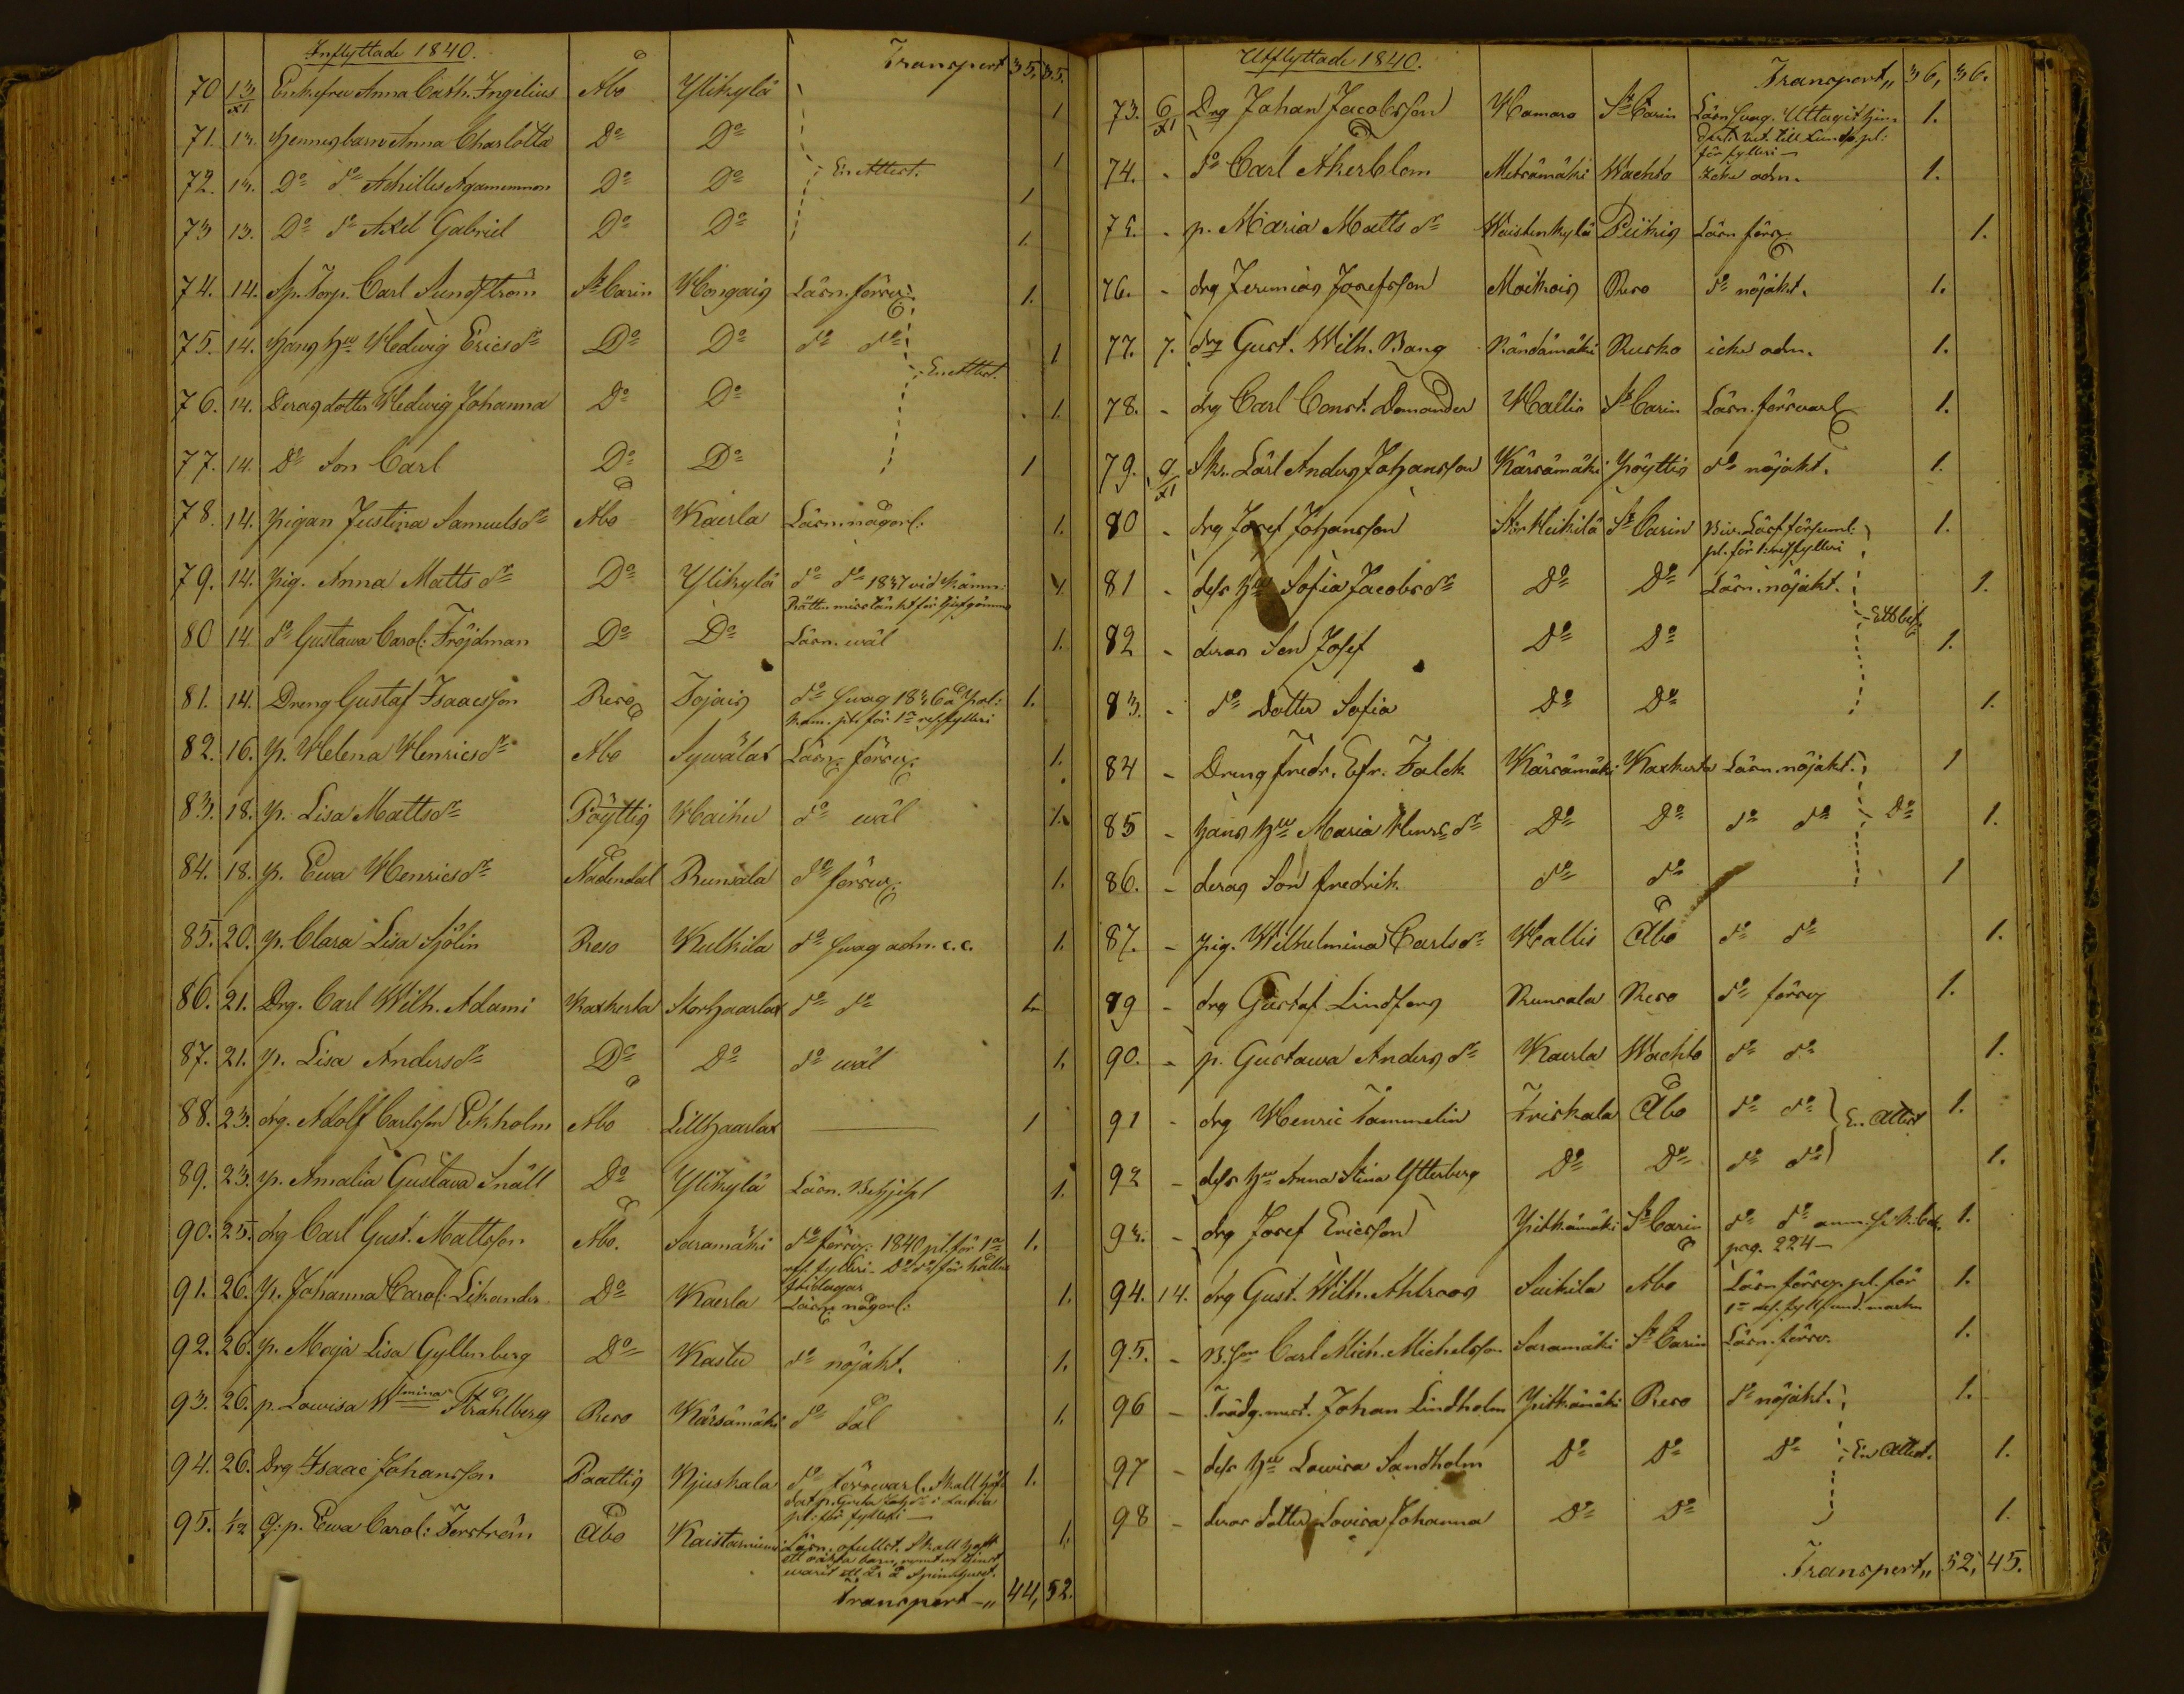 Inflyttade 1840.
Transport 35. 35.
70 13/XI Enkefru Anna Cath. Ingelius Åbo Ylikylä 1
71. 13. Hennes barn Anna Charlotta Do Do 1
72. 13. Do do Achilles Agamemnon Do Do En Attest. 1
73 13. Do do Axel Gabriel Do Do 1.
74. 14. Sp. Torp. Carl Sundström St Carin Kongais Läsn. försv. 1.
75. 14. Hans Hu Hedwig Ericsdr Do Do do do 1
En Attest.
76. 14. Deras dotter Hedwig Johanna Do Do 1.
77. 14. Do Son Carl Do Do 1
78. 14. Pigan Justina Samuelsdr Åbo Kaerla Läsn. någorl: 1.
79. 14. Pig. Anna Mattsdr Do Ylikylä do do 1837 vid Kämn: 1.
Rätten misstänkt för tjufgömme
80 14. do Gustava Carol: Fröjdman Do Do Läsn. wäl 1.
81. 14. Dreng Gustaf Isaacsson Reso Tojais do swag 1836 å Pol: 1.
kam. pl. för 1a res fylleri
82. 16. P. Helena Henricsdr Åbo Syvälax Läsn. försv. 1.
83. 18. P. Lisa Mattsdr Pöyttis Haihu do wäl 1.
84. 18. P. Ewa Henricsdr Nådendal Runsala do försv. 1.
85. 20. P. Clara Lisa Sjölin Reso Kulkila do swag adm. c.c. 1.
86. 21. Drg. Carl Wilh. Adami Kaxkerta Storhaarlax do do 1.
87. 21. P. Lisa Andersdr Do Do do wäl 1.
88. 23. drg. Adolf Carlsson Ekholm Åbo Lillhaarlax — 1
89. 23. P. Amalia Gustava Snäll Do Ylikylä Läsn. 1.
90. 25. drg Carl Gust. Mattsson Åbo. Saramäki do försv. 1840 pl. för 1a 1.
res. fylleri — Do do för hållne
91. 26. P. Johanna Carol: Lihander Do Kaerla Läsn. någorl: 1.
92. 26. P. Maja Lisa Gyllenberg Do Kastu do nöjakt. 1.
93. 26. p. Lowisa Wmina Stråhlberg Reso Kärsämäki do 1.
94. 26. Drg Isaac Johansson Paattis Kjuskala do försvarl. Skall 1.
pl: för fylleri —
95. 1/12 p. Ewa Carol: Forström Åbo Kaistarniemi Läsn. ofullst. Skall haft 1.
ett oäkta barn,
warit å Spinnhuset.
Transport — 44, 52.
Utflyttade 1840.
Transport 36, 36.
73. 6/XI Drg Johan Jacobsson Hamaro St Carin Läsn swag. Uttagit 1.
för fylleri —
74. - do Carl Åkerblom Metsämäki Wachto Icke adm. 1.
75. - p. Maria Mattsdr Waistenkylä Piikis Läsn försv. 1.
76. - drg Jeremias Josefsson Moikois Reso do nöjakt. 1.
77. 7. drg Gust. Wilh. Bang Rändämäki Rusko icke adm. 1.
78. - drg Carl Const. Domander Hallis St Carin Läsn. försvarl 1.
79. 9/XI Sko. Lärl Anders Johansson Kärsämäki Pöyttis do nöjakt. 1.
80 - drg Josef Johansson Stor Heikilä St Carin försuml. 1.
pl. för 1. res fylleri
81 - dess Hu Sofia Jacobsdr Do Do Läsn. nöjakt. 1.
Ett bet.
82 - deras Son Josef Do Do 1.
83. - do Dotter Sofia Do Do 1.
84 - Dreng Fredr. Efr. Falck Kärsämäki Kaxkerta Läsn. nöjakt. 1
85 - hans Hu Maria Henrsdr Do Do do do Do 1.
86. - deras Son Fredrik do do 1
87. - pig. Wilhelmina Carlsdr Hallis Åbo do do 1.
89 - drg Gustaf Lindfors Runsala Reso do försv 1.
90. - p. Gustawa Andersdr Kaerla Wachto do do 1.
91 - drg Henric Tammelin Friskala Åbo do do En Attest 1.
92 - dess Hu Anna Stina Ytterberg Do Do do do 1.
93. - drg Josef Ericsson Pitkämäki St Carin do do anm. 1.
pag. 224 —
94. 14. drg Gust. Wilh. Ahlroos Suikila Åbo Läsn försv. pl. för 1.
95. - Carl Mich. Michelsson Saramäki St Carin Läsn. försv. 1.
96 - Trädg. mest. Johan Lindholm Pitkämäki Reso do nöjakt. 1.
97 - dess Hu Lowisa Sandholm Do Do Do En Attest. 1.
98 - deras dotter Lovisa Johanna Do Do 1.
Transport 52, 45.